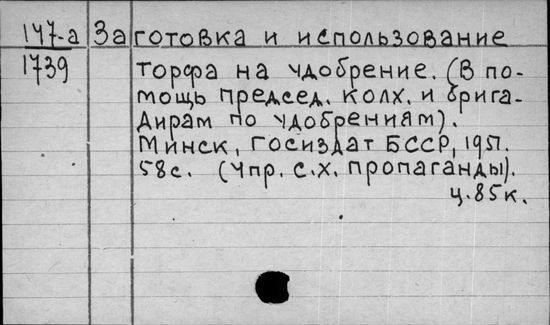 147-а Заготовка и использование
1739 торфа на удобрение. (В по-
мощь председ. колх. и брига-
дирам по удобрениям).
Минск, Госиздат БССР, 1951.
58с. (Упр. с.х. пропаганды).
ц. 85к.